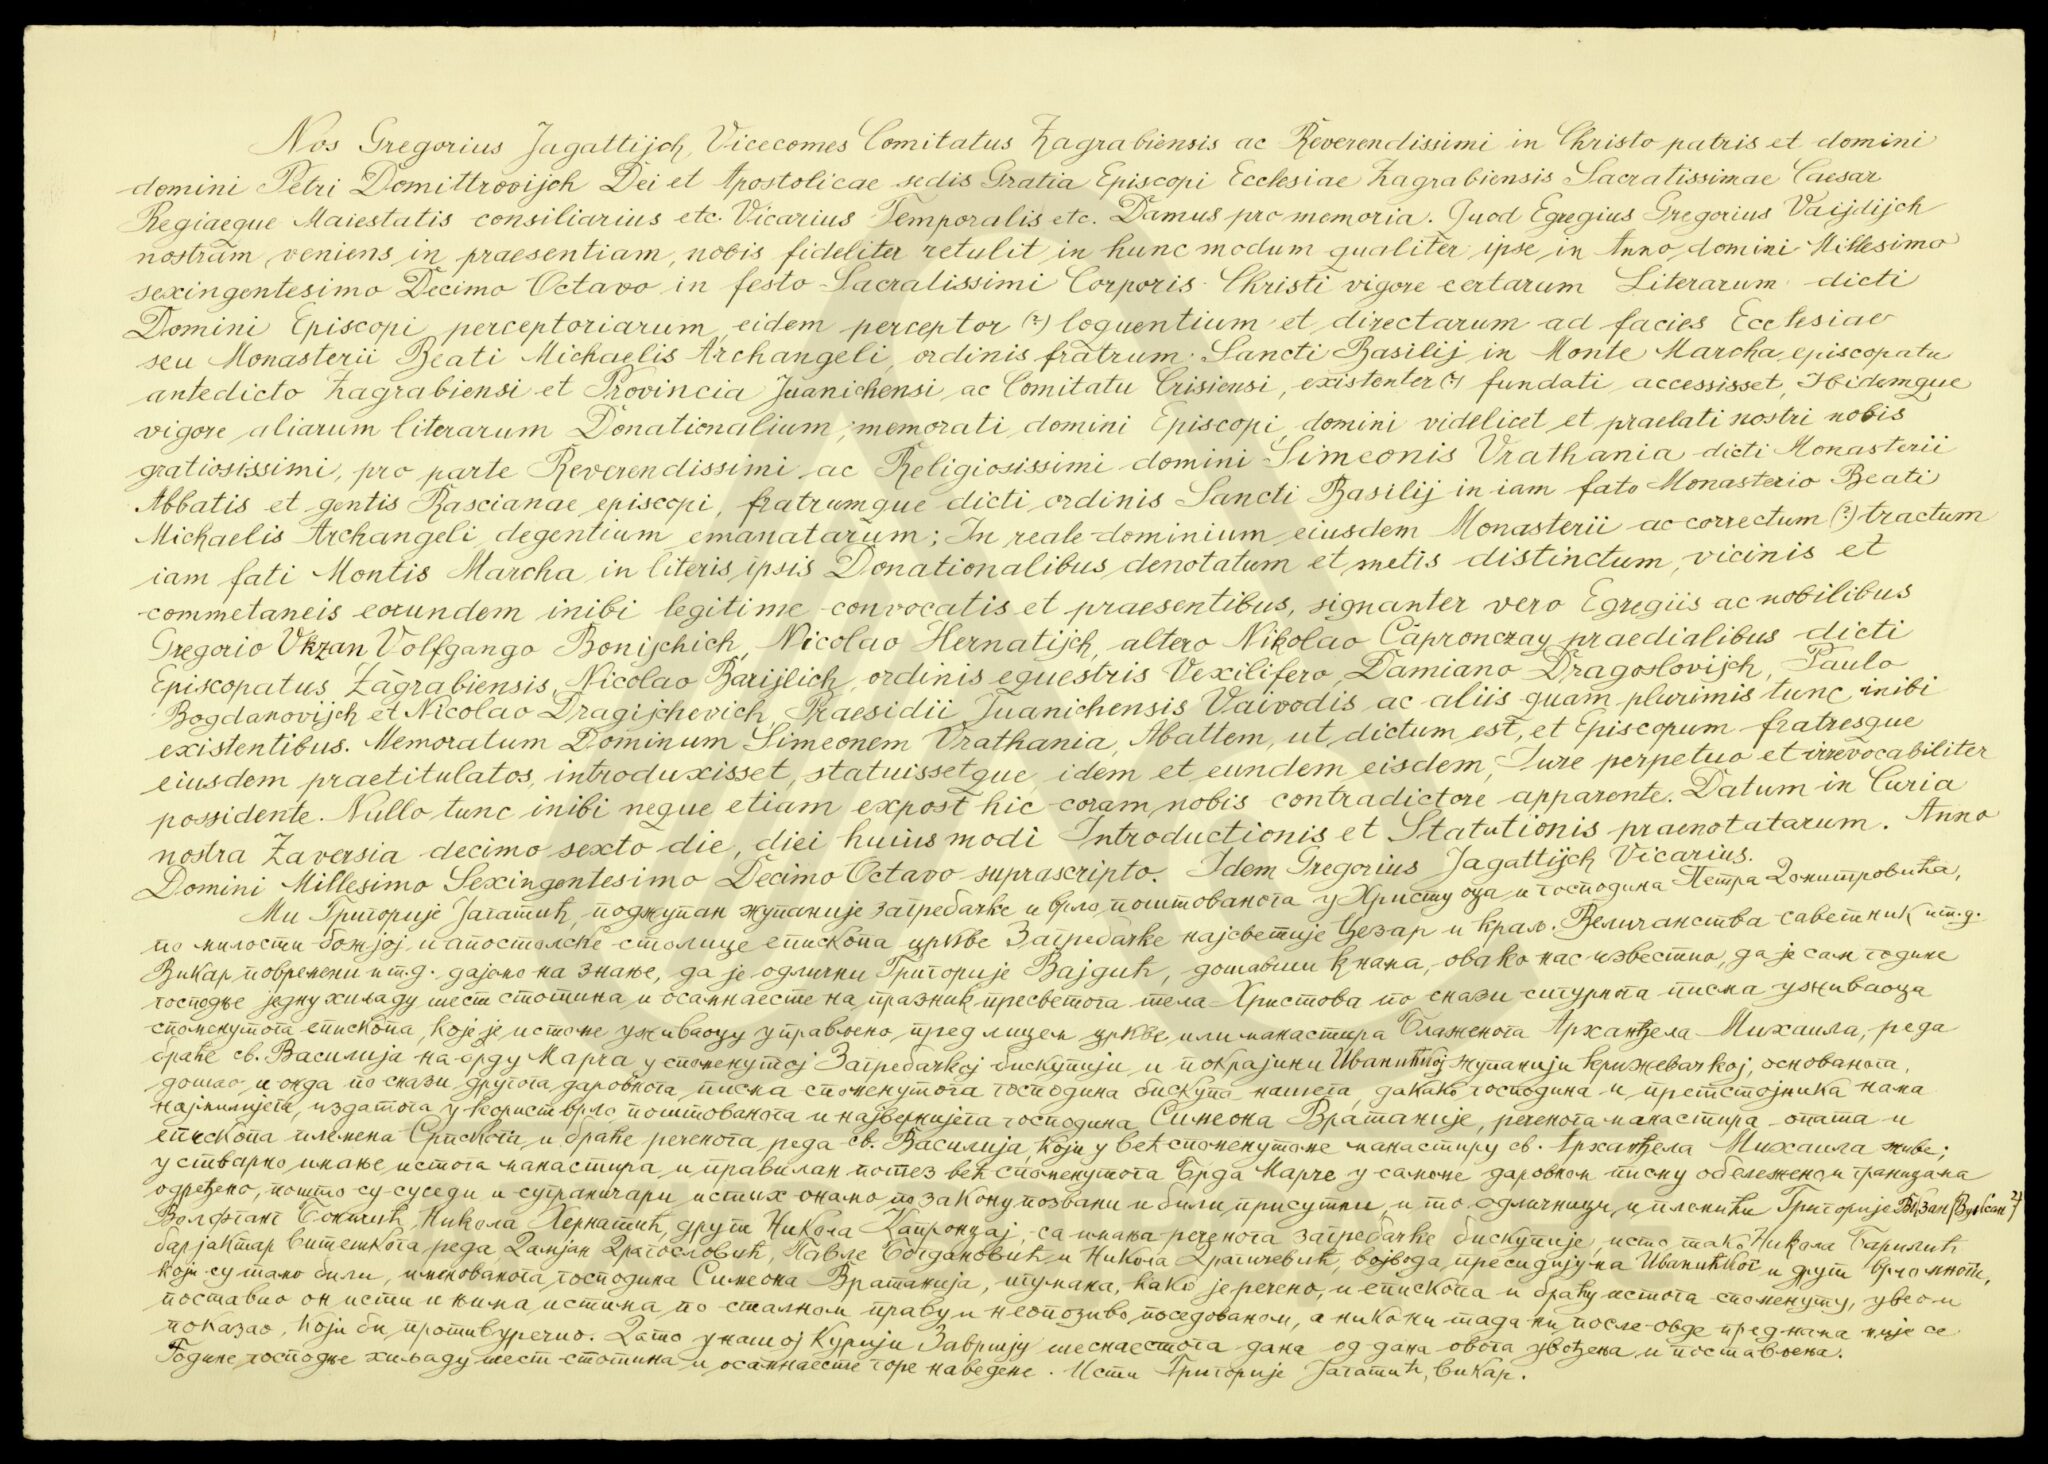 Nos Gregorius Jagattijch, Vicecomes Comitatus Zagrabiensis ac Reverendissimi in Christo patris et domini
domini Petri Domittrovijch Dei et Apostolicae sedis Gratia Episcopi Ecclesiae Zagrabiensis Sacratissimae Caesar
Regiaeque Maiestatis consiliarius etc. Vicarius Temporalis etc. Damus pro memoria. Quod Egregius Gregorius Vaijdijch
nostram veniens in praesentiam, nobis fideliter retulit in hunc modum qualiter ipse in Anno domini Millesimo
sexingentesimo Decimo Octavo in festo Sacratissimi Corporis Christi vigore certarum Literarum dicti
Domini Episcopi perceptoriarum, eidem perceptor (?) loquentium et directarum ad facies Ecclesiae
seu Monasterii Beati Michaelis Archangeli, ordinis fratrum Sancti Basilij in Monte Marcha, episcopatu
antedicto Zagrabiensi et Provincia Juanichensi, ac Comitatu Crisiensi, existenter (?) fundati accessisset, Ibidemque
vigore aliarum literarum Donationalium, memorati domini Episcopi, domini videlicet et praelati nostri nobis
gratiosissimi, pro parte Reverendissimi ac Religiosissimi domini Simeonis Vrathania dicti Monasterii
Abbatis et gentis Rascianae episcopi, fratrumque dicti ordinis Sancti Basilij in iam fato Monasterio Beati
Michaelis Archangeli, degentium emanatarum; In reale dominium eiusdem Monasterii ac correctum (?) tractum
iam fati Montis Marcha, in literis ipsis Donationalibus denotatum et metis distinctum, vicinis et
commetaneis eorundem inibi legitime convocatis et praesentibus, signanter vero Egregiis ac nobilibus
Gregorio Vkzan Volfgango Bonijchich, Nicolao Hernatijch, altero Nikolao Càpronczay praedialibus dicti
Episcopatus Zagrabiensis, Nicolao Barijlich, ordinis equestris Vexilifero, Damiano Dragoslovijch, Paulo
Bogdanovijch et Nicolao Dragijchevich, Praesidii Juanichensis Vaivodis ac aliis quam plurimis tunc inibi
existentibus. Memoratum Dominum Simeonem Vrathania, Abattem, ut dictum est, et Episcopum fratresque
eiusdem praetitulatos, introduxisset, statuissetque idem et eundem eisdem, Jure perpetuo et irrevocabiliter
possidente. Nullo tunc inibi neque etiam expost hic coram nobis contradictore apparente. Datum in Curia
nostra Zaversia decimo sexto die, diei huiusmodi Introductionis et Statutionis praenotatarum. Anno
Domini Millesimo Sexingentesimo Decimo Octavo suprascripto. Idem Gregorius Jagattijch Vicarius.
Ми Григорије Јагатић, поджупан жупаније загребачке и врло поштованога у Христу оца и господина Петра Домитровића,
по милости божјој и апостолске столице епископа цркве Загребачке најсветије Цезар и краљ. Величанства саветник ит.д.
Викар повремени ит.д. дајемо на знање, да је одлични Григорије Вајдић, дошавши к нама, овако нас известио, да је сам године
господње једну хиљаду шест стотина и осамнаесте на празник пресветога тела Христова по снази сигурнога писма уживаоца
споменутога епископа, које је истоме уживаоцу управљено, пред лицем цркве или манастира Блаженога Арханђела Михаила, реда
браће св. Василија на брду Марча у споменутој Загребачкој бискупији и покрајини Иванићкој жупанији крижевачкој, основанога,
дошао, и онда по снази другога даровнога писма споменутога господина бискупа нашега, дакако господина и претстојника нама
најмилијега, издатога у корист врло поштованога и највернијега господина Симеона Вратаније, реченога манастира опата и
епископа племена Српскога и браће реченога реда св. Василија, који у већ споменутоме манастиру св. Арханђела Михаила живе;
у стварно имање истога манастира и правилан потез већ споменутога Брда Марче у самоме даровном писму обележеном границама
одређено, пошто су суседи и суграничари истих онамо по закону позвани и били присутни, и то одличници и племићи Григорије Вкзан (Вукcан ?)
Волфганг Боничић, Никола Хернатић, други Никола Капронцај, са имања реченога загребачке бискупије, исто тако Никола Барилић
барјактар витешкога реда, Дамјан Драгословић, Павле Богдановић и Никола Драгичевић, војвода пресидијума Иванићког и други врло многи,
који су тамо били, именованога, господина Симеона Вратанија, игумана, како је речено, и епископа и браћу истога споменуту, увео и
поставио он исти и њима истима по сталном праву и неопозиво поседованом, а нико ни тада ни после овде пред нама није се
показао, који би противуречио. Дато у нашој Курији Завршју шеснаестога дана од дана овога увођења и постављења.
Године господње хиљаду шест стотина и осамнаесте горе наведене. Исти Григорије Јагатић, викар.